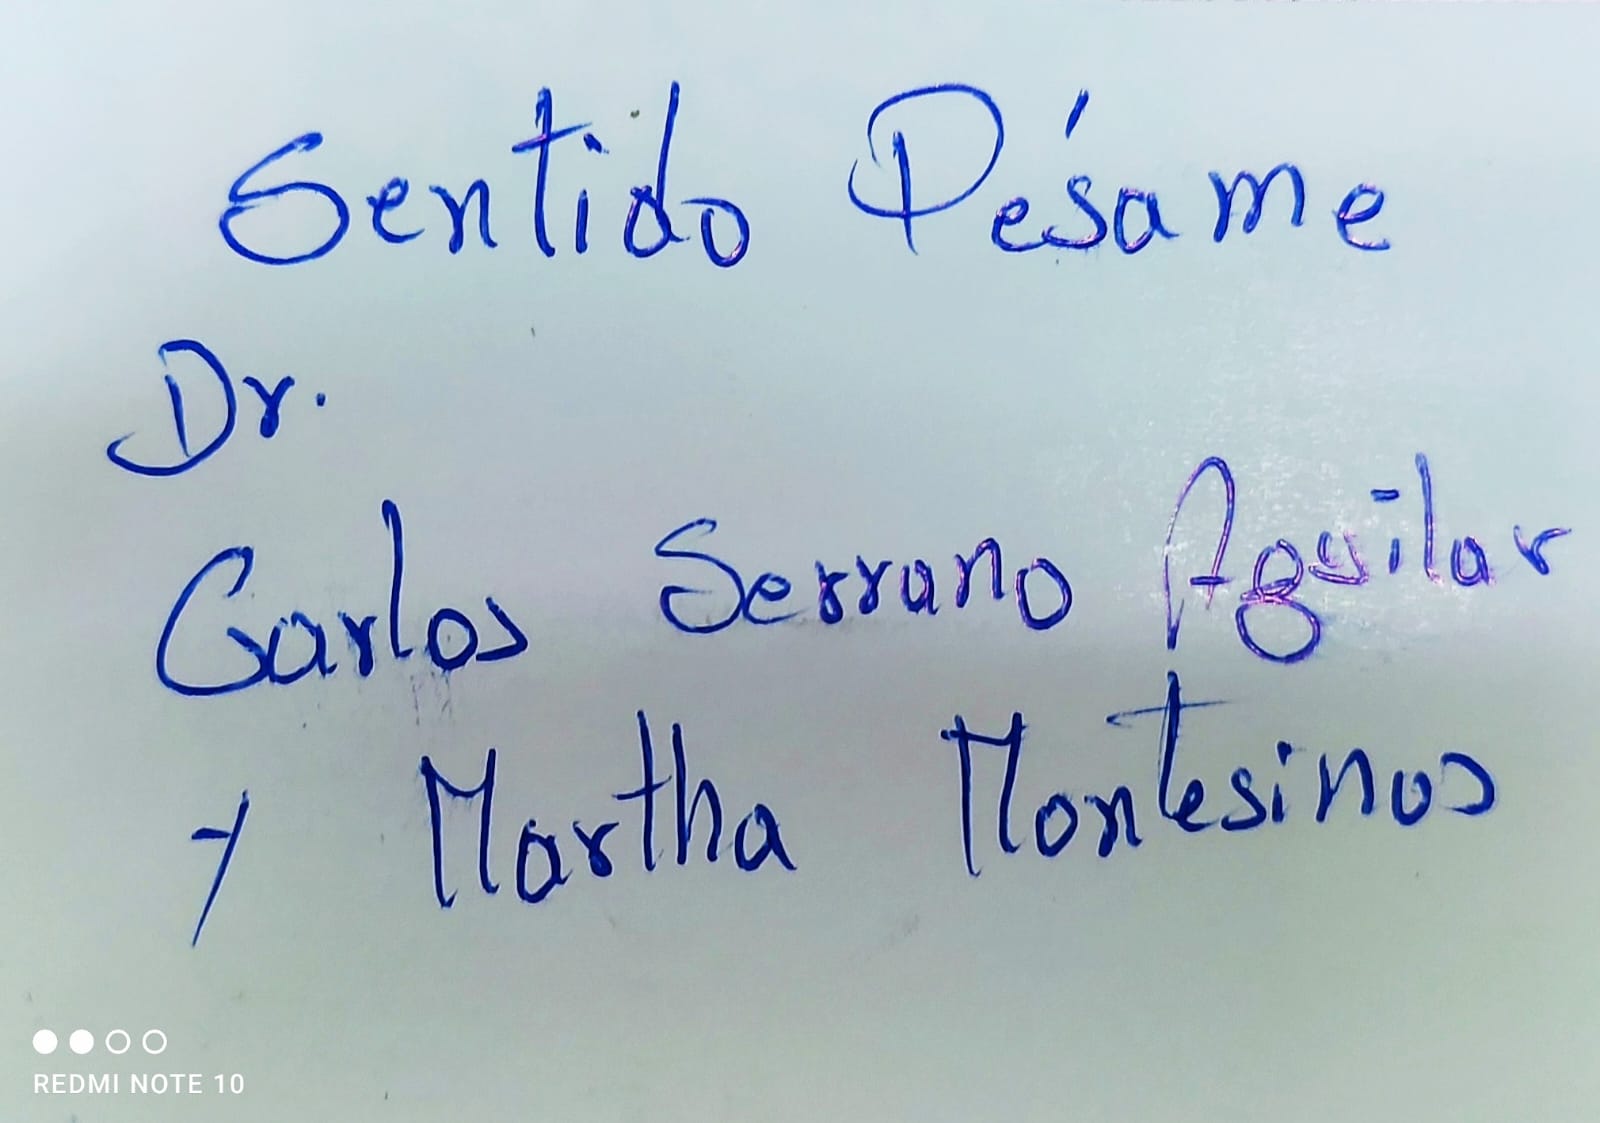 Sentido Pésame
Dr.
Carlos Serrano Aguilar
y Martha Montesinos
REDMI NOTE 10